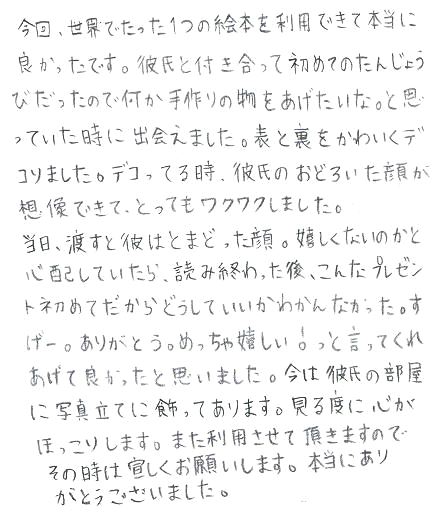 今回、世界でたった1つの絵本を利用できて本当に
良かったです。彼氏と付き合って初めてのたんじょう
びだったので何か手作りの物をあげたいな。と思
っていた時に出会えました。表と裏をかわいくデ
コりました。デコってる時、彼氏のおどろいた顔が
想像できて、とってもワクワクしました。
当日、渡すと彼はとまどった顔。嬉しくないのかと
心配していたら、読み終わった後、こんなプレゼン
ト初めてだからどうしていいかわかんなかった。す
げー。ありがとう。めっちゃ嬉しい!っと言ってくれ
あげて良かったと思いました。今は彼氏の部屋
に写真立てに飾ってあります。見る度に心が
ほっこりします。また利用させて頂きますので
その時は宜しくお願いします。本当にあり
がとうございました。